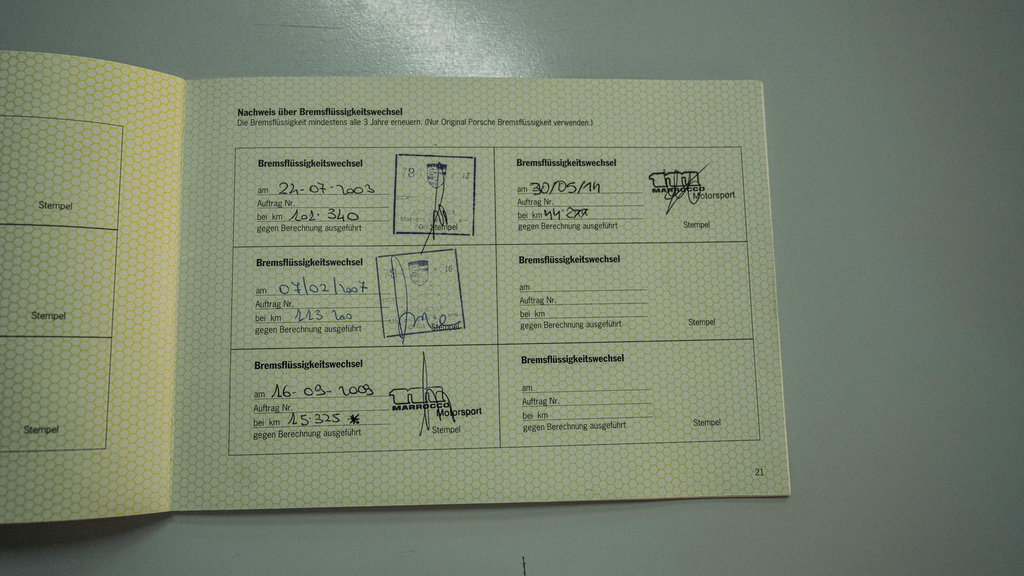 Stempel
Stempel
Stempel
Nachweis über Bremsflüssigkeitswechsel
Die Bremsflüssigkeit mindestens alle 3 Jahre erneuern. (Nur Original Porsche Bremsflüssigkeit verwenden.)
Bremsflüssigkeitswechsel
am 24-07-2003
Auftrag Nr.
bei km 101.340
gegen Berechnung ausgeführt
Stempel
Bremsflüssigkeitswechsel
am 07/02/2007
Auftrag Nr.
bei km 113 200
gegen Berechnung ausgeführt
Stempel
Bremsflüssigkeitswechsel
am 16-09-2009
Auftrag Nr.
bei km 15.325 *
gegen Berechnung ausgeführt
MARROCCO
Motorsport
Stempel
Bremsflüssigkeitswechsel
am 30/05/14
Auftrag Nr.
bei km 44.277
gegen Berechnung ausgeführt
MARROCCO
Motorsport
Stempel
Bremsflüssigkeitswechsel
am
Auftrag Nr.
bei km
gegen Berechnung ausgeführt
Stempel
Bremsflüssigkeitswechsel
am
Auftrag Nr.
bei km
gegen Berechnung ausgeführt
Stempel
21